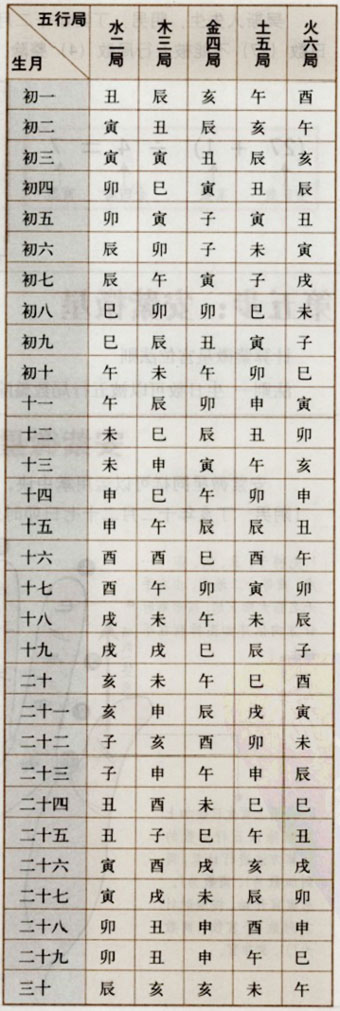 五行局 生月 水二局 木三局 金四局 土五局 火六局
初一 丑 辰 亥 午 酉
初二 寅 丑 辰 亥 午
初三 寅 寅 丑 辰 亥
初四 卯 巳 寅 丑 辰
初五 卯 寅 子 寅 丑
初六 辰 卯 子 未 寅
初七 辰 午 寅 子 戌
初八 巳 卯 卯 巳 未
初九 巳 辰 丑 寅 子
初十 午 未 午 卯 巳
十一 午 辰 卯 申 寅
十二 未 巳 辰 丑 卯
十三 未 申 寅 午 亥
十四 申 巳 午 卯 申
十五 申 午 辰 辰 丑
十六 酉 酉 巳 酉 午
十七 酉 午 卯 寅 卯
十八 戌 未 午 未 辰
十九 戌 戌 巳 辰 子
二十 亥 未 午 巳 酉
二十一 亥 申 辰 戌 寅
二十二 子 亥 酉 卯 未
二十三 子 申 午 申 辰
二十四 丑 酉 未 巳 巳
二十五 丑 子 巳 午 丑
二十六 寅 酉 戌 亥 戌
二十七 寅 戌 未 辰 卯
二十八 卯 丑 申 酉 申
二十九 卯 丑 申 午 巳
三十 辰 亥 亥 未 午